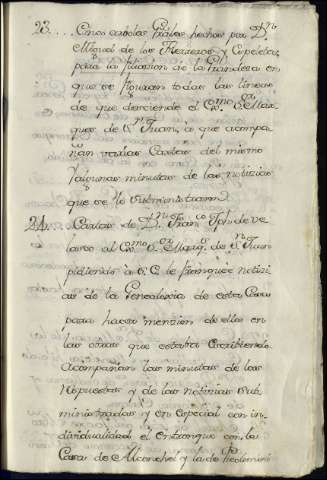 23.... Cinco arboles Grales hechos por Dn
Miguel de los Herreros y Cepedas,
para la fusion de la Grandeza en
que se ponian todas las lineas
de que desciende el Exmo. Sor. Mar
ques de Sn Juan, a que acompa
ñan varias Cartas del mismo
y algunas minutas de las noticias
que se le subministraron.
24... Cartas de Dn Franco Jph. de Ve
lasco al Exmo. Sor. Marqs. de Sn Juan
pidiendo a S. E. le franquee notici
as de la Genealogia de esta Casa
para hacer mencion de ella en
las obras que estaba Escribiendo.
Acompañan las minutas de las
respuestas y de las noticias sub
ministradas y en especial con in
dividualidad el entronque con la
Casa de Alconchel y la de